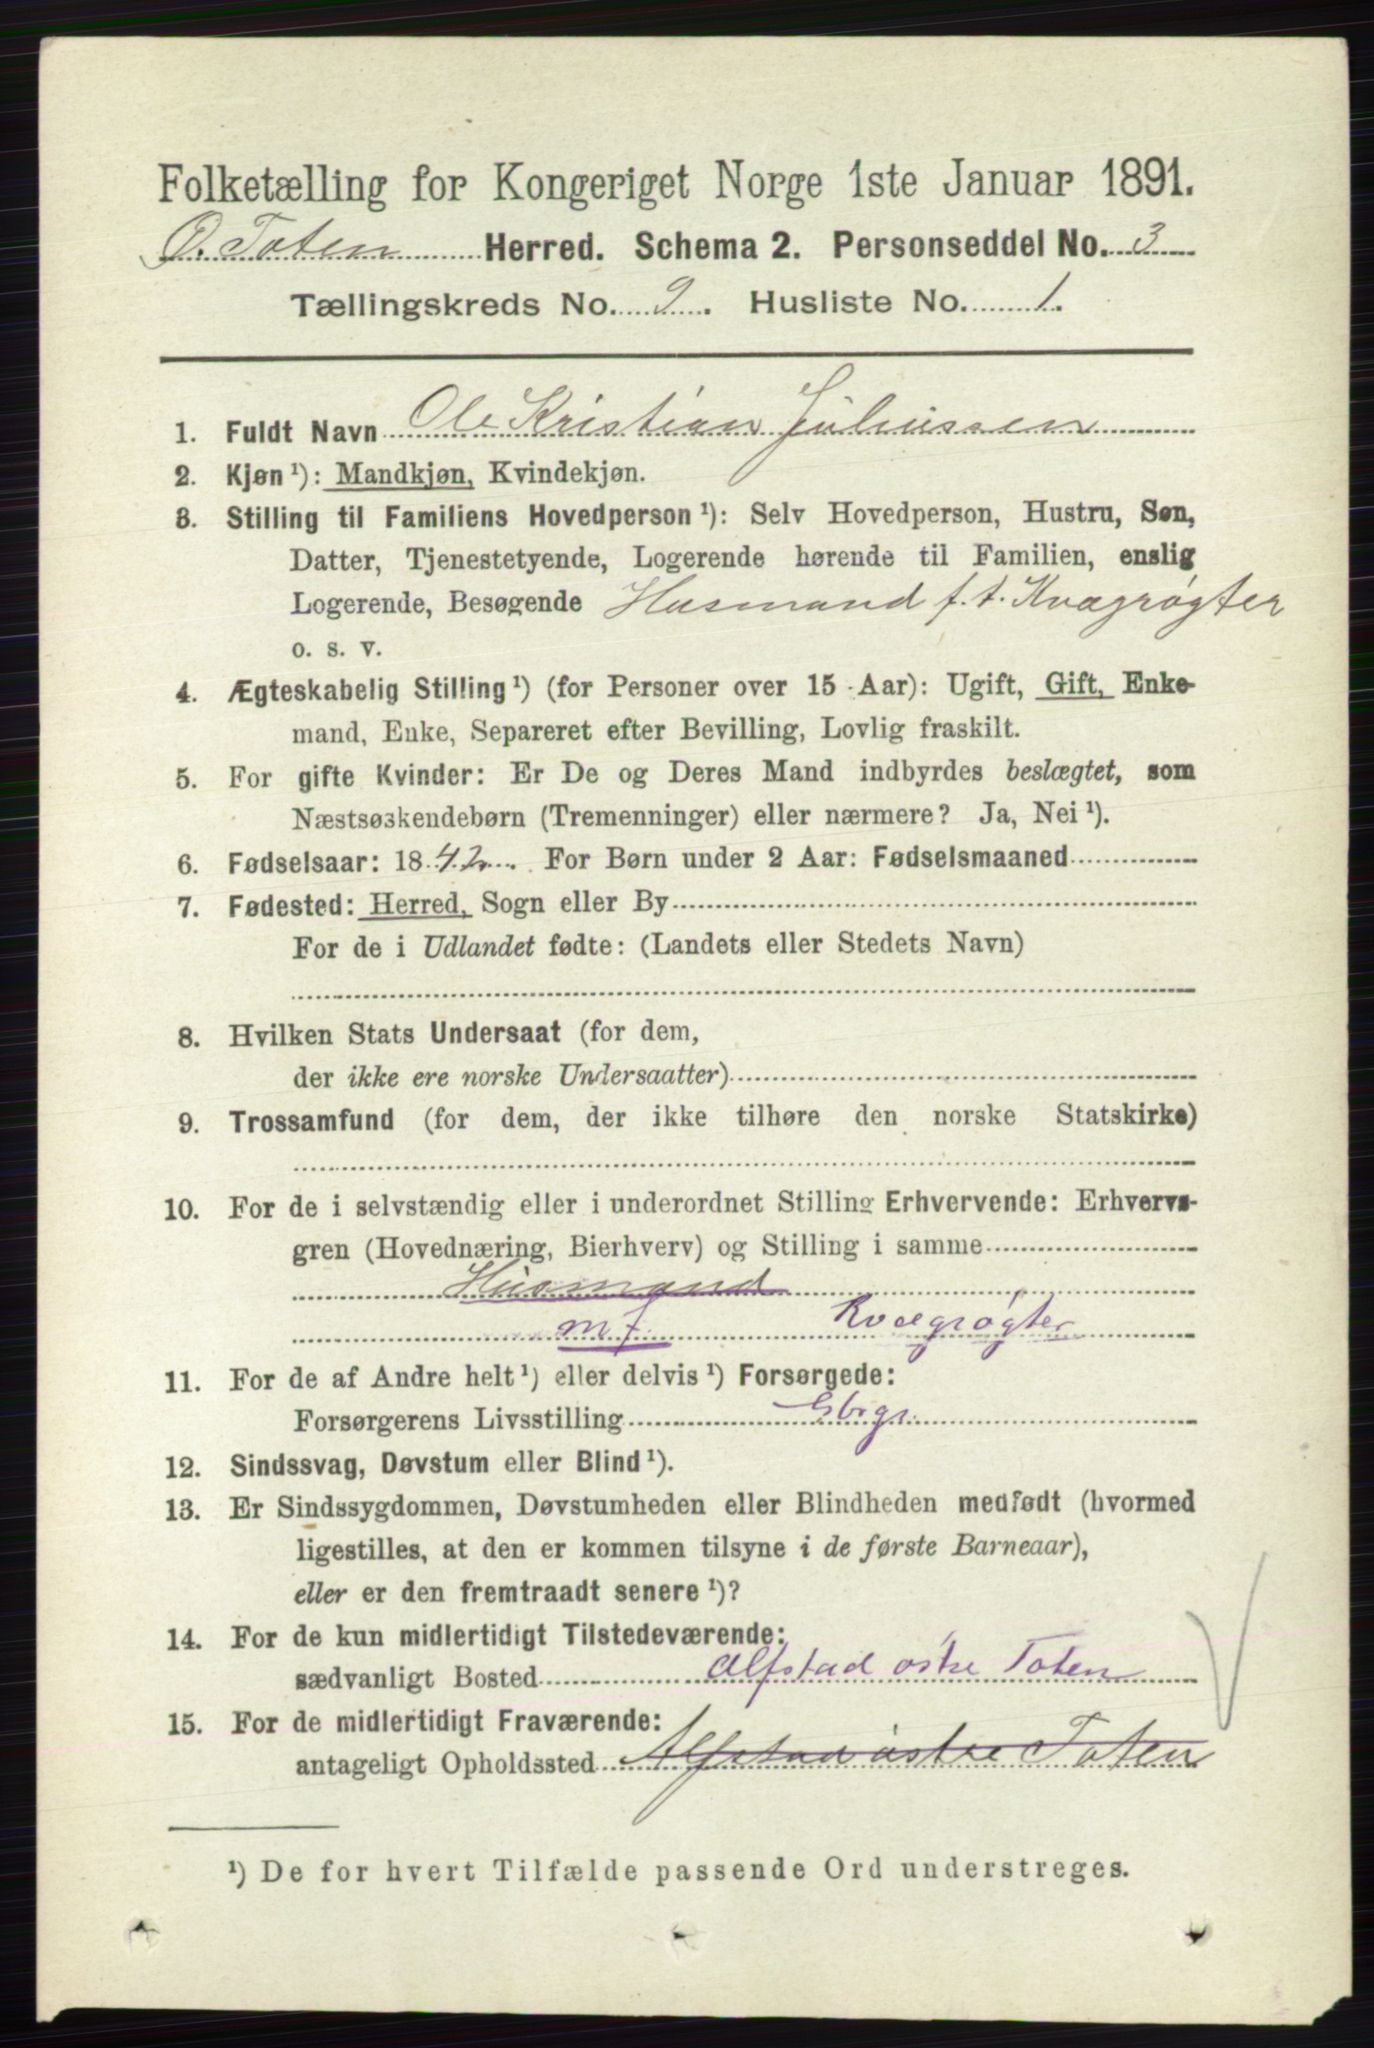 Folketælling for Kongeriget Norge 1ste Januar 1891.
Ø. Toten Herred. Schema 2. Personseddel No. 3
Tællingskreds No. 9. Husliste No. 1.
1. Fuldt Navn Ole Kristian Juliussen
2. Kjøn ¹): Mandkjøn, Kvindekjøn.
3. Stilling til Familiens Hovedperson ¹): Selv Hovedperson, Hustru, Søn,
Datter, Tjenestetyende, Logerende hørende til Familien, enslig
Logerende, Besøgende Husmand f. t. Kvægrøgter
o. s. v.
4. Ægteskabelig Stilling ¹) (for Personer over 15 Aar): Ugift, Gift, Enke-
mand, Enke, Separeret efter Bevilling, Lovlig fraskilt.
5. For gifte Kvinder: Er De og Deres Mand indbyrdes beslægtet, som
Næstsøskendebørn (Tremenninger) eller nærmere? Ja, Nei ¹).
6. Fødselsaar: 1842. For Børn under 2 Aar: Fødselsmaaned
7. Fødested: Herred, Sogn eller By
For de i Udlandet fødte: (Landets eller Stedets Navn)
8. Hvilken Stats Undersaat (for dem,
der ikke ere norske Undersaatter)
9. Trossamfund (for dem, der ikke tilhøre den norske Statskirke)
10. For de i selvstændig eller i underordnet Stilling Erhvervende: Erhvervs-
gren (Hovednæring, Bierhverv) og Stilling i samme
Husmand
m j. Kvægrøgter
11. For de af Andre helt ¹) eller delvis ¹) Forsørgede:
Forsørgerens Livsstilling Gbrgr.
12. Sindssvag, Døvstum eller Blind ¹).
13. Er Sindssygdommen, Døvstumheden eller Blindheden medfødt (hvormed
ligestilles, at den er kommen tilsyne i de første Barneaar),
eller er den fremtraadt senere ¹)?
14. For de kun midlertidigt Tilstedeværende:
sædvanligt Bosted Alfstad østre Toten
15. For de midlertidigt Fraværende:
antageligt Opholdssted Alfstad østre Toten
¹) De for hvert Tilfælde passende Ord understreges.